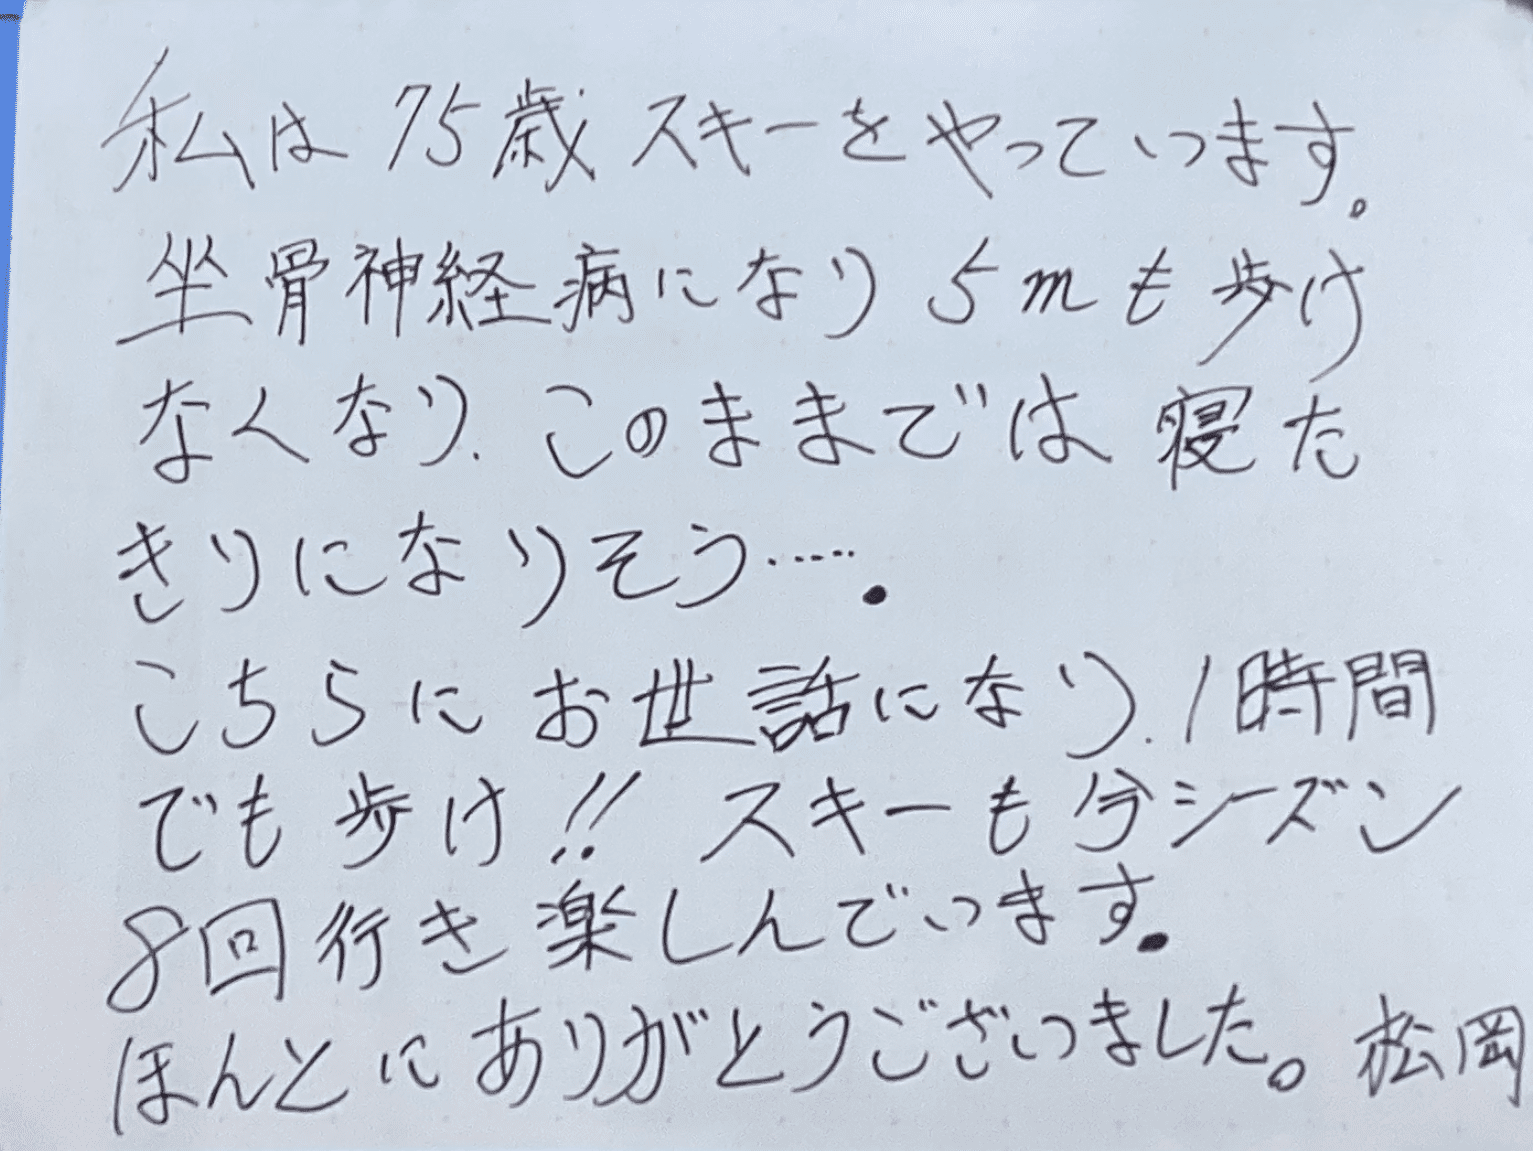 私は75歳スキーをやっています。
坐骨神経病になり5mも歩け
なくなり、このままでは寝た
きりになりそう……。
こちらにお世話になり、1時間
でも歩け!!スキーも今シーズン
8回行き楽しんでいます。
ほんとにありがとうございました。松岡